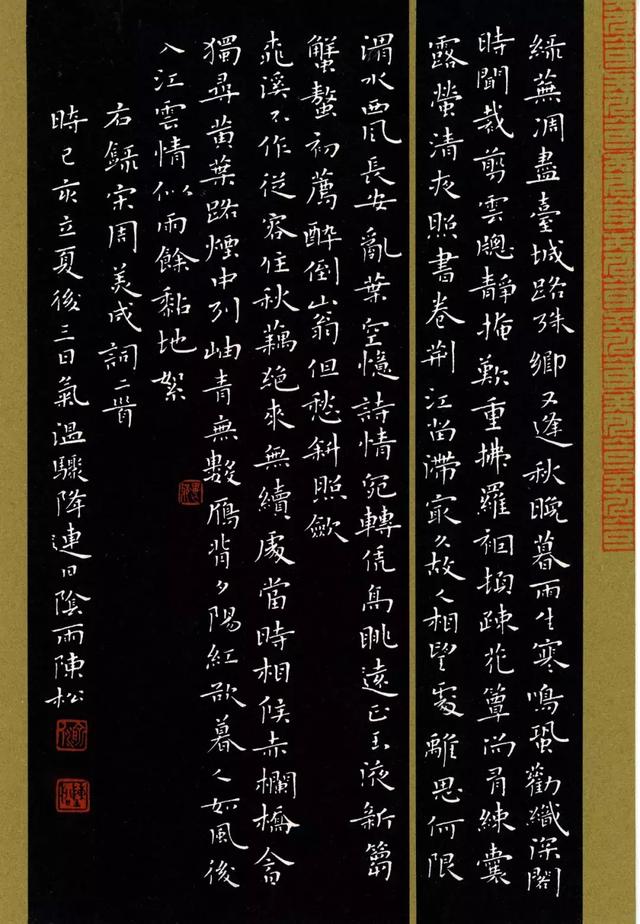 綠蕪凋盡臺城路殊鄉又逢秋晚暮雨生寒鳴蛩勸織深閣
時聞裁剪雲牕靜掩歎重拂羅裀頓疎花簟尚有練囊
露螢清夜照書卷荊江留滯最久故人相望處離思何限
渭水西風長安亂葉空憶詩情宛轉凭高眺遠正玉液新篘
蟹螯初薦醉倒山翁但愁斜照斂
桃溪不作從容住秋藕絕來無續處當時相候赤欄橋今日
獨尋黃葉路煙中列岫青無數鴈背夕陽紅欲暮人如風後
入江雲情似雨餘黏地絮
右録宋周美成詞二首
時己亥立夏後三日氣溫驟降連日陰雨陳松